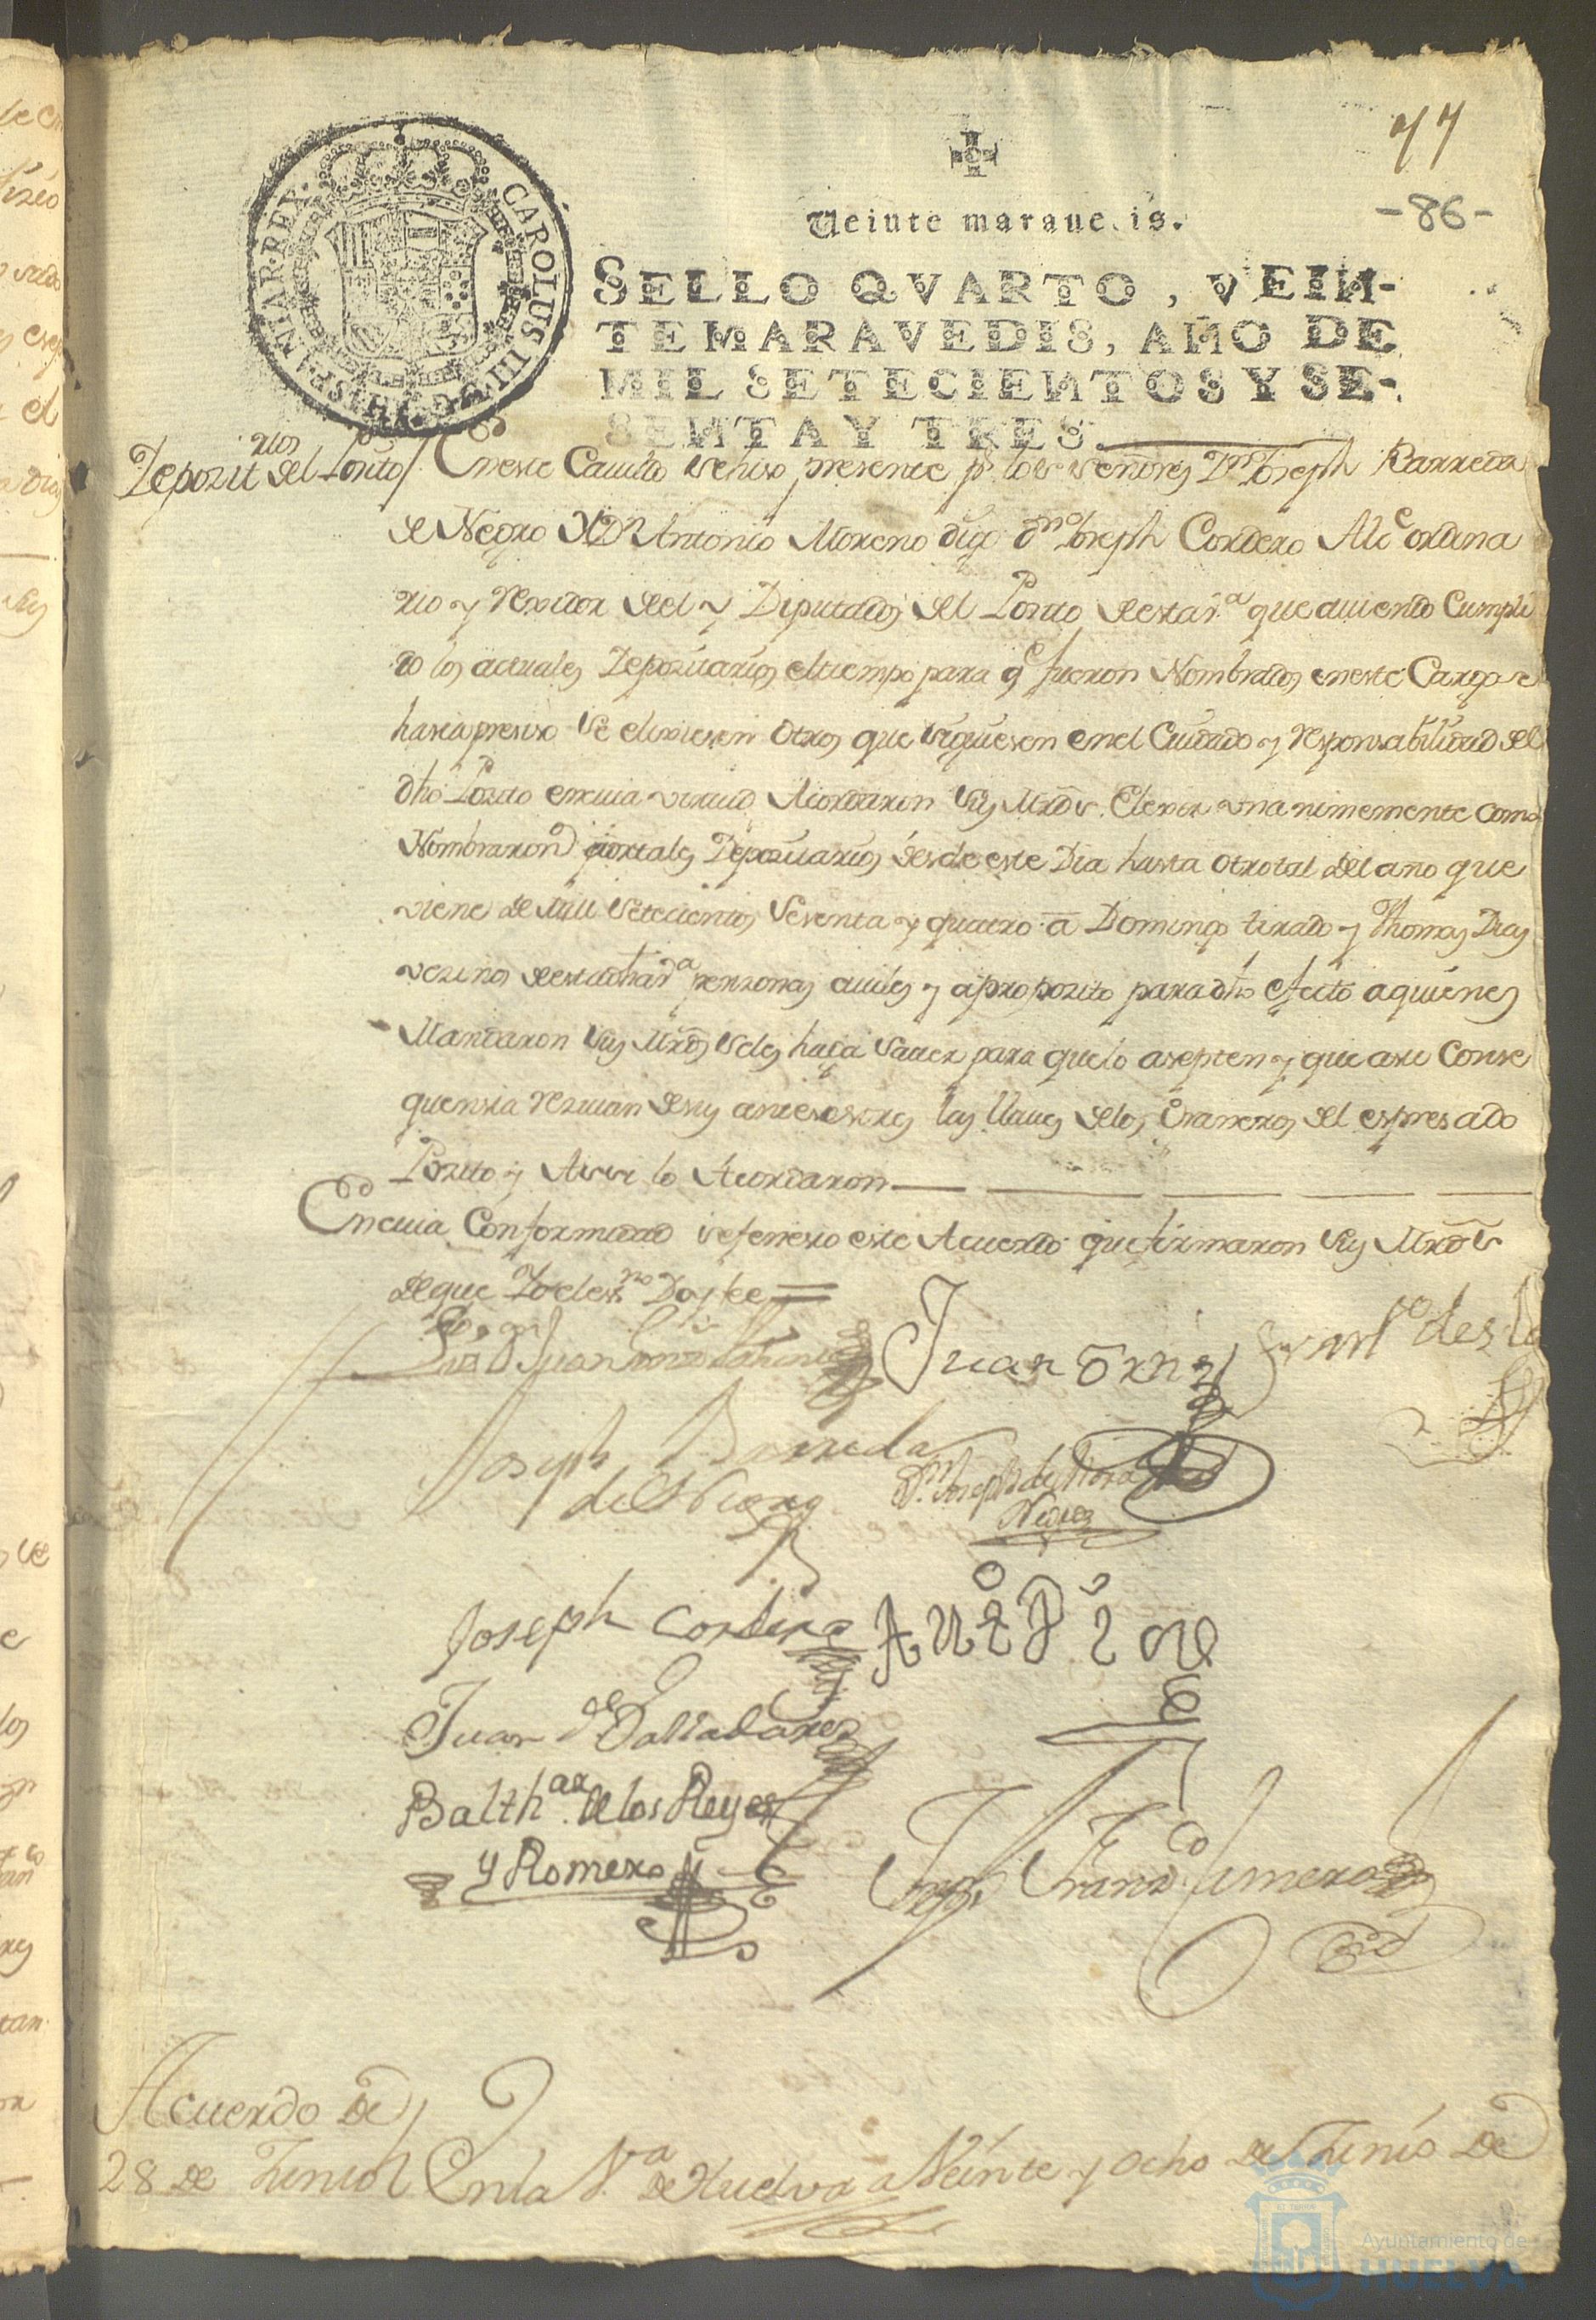 77
-86-
CAROLUS III D.G. HISPANIAR. REX.
Veinte maravedis.
SELLO QVARTO, VEIN-
TE MARAVEDIS, AÑO DE
MIL SETECIENTOS Y SE-
SENTA Y TRES.
Depozit.rios del Pozito / En este Cavildo se hiso presente p.r los Señores D.n Joseph Barreda
de Negro y D.n Antonio Moreno digo d.n Joseph Cordero Alc.e ordina
rio y rexidor del y Diputados del Pozito de esta v.a que auiendo Cumpli
do los actuales Depozitarios el tiempo para q.e fueron Nombrados en este Cargo e
hasia presiso se elixiesen otros que siguiesen en el Cuidado y responsabilidad del
dho Pozito en cuia virtud Acordaron sus Mrds. Elexir unanimemente como
Nombraron por tales Depozitarios desde este Dia hasta otro tal del año que
viene de mill setecientos sesenta y quatro a Domingo tirado y Thomas Dias
vezinos de esta dha v.a perzonas auiles y a propozito para dho efecto a quienes
Mandaron sus Mrds se les haga sauer para que lo asepten y que a su Conse
quensia resiuan de sus antesesores las llaues de los Graneros del espresado
Pozito y Assi lo Acordaron
En cuia Conformidad se fenesio este Acuerdo que firmaron sus Mrds
de que Yo el ess.no Doy fee =
Juan
Joseph Barreda
de Negro
D.n Joseph de Mora
Negro
Joseph Cordero
Juan de Valladares
Balth.ar de los Reyes
y Romero
Fran.co Jimenez
Acuerdo de
28 de Junio / En la V.a de Huelva a Veinte y ocho de Junio de
Ayuntamiento de
HUELVA